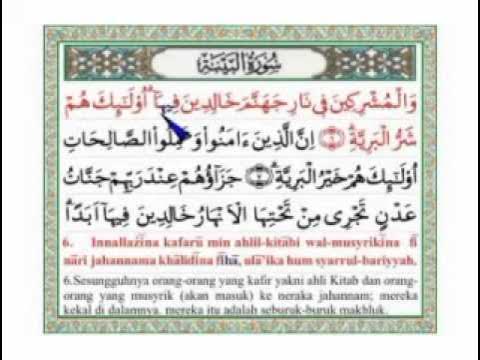 سُورَةُ البَيِّنَةِ
وَالْمُشْرِكِينَ فِي نَارِ جَهَنَّمَ خَالِدِينَ فِيهَآ أُوْلَٰٓئِكَ هُمْ
شَرُّ الْبَرِيَّةِ ﴿٦﴾ إِنَّ الَّذِينَ ءَامَنُوا وَعَمِلُوا الصَّالِحَاتِ
أُوْلَٰٓئِكَ هُمْ خَيْرُ الْبَرِيَّةِ ﴿٧﴾ جَزَآؤُهُمْ عِنْدَ رَبِّهِمْ جَنَّاتُ
عَدْنٍ تَجْرِي مِنْ تَحْتِهَا الْأَنْهَارُ خَالِدِينَ فِيهَآ أَبَدًا
6. Innallazīna kafarū min ahlil-kitābi wal-musyrikīna fī
nāri jahannama khālidīna fīhā, ulā'ika hum syarrul-bariyyah.
6.Sesungguhnya orang-orang yang kafir yakni ahli Kitab dan orang-
orang yang musyrik (akan masuk) ke neraka jahannam; mereka
kekal di dalamnya. mereka itu adalah seburuk-buruk makhluk.